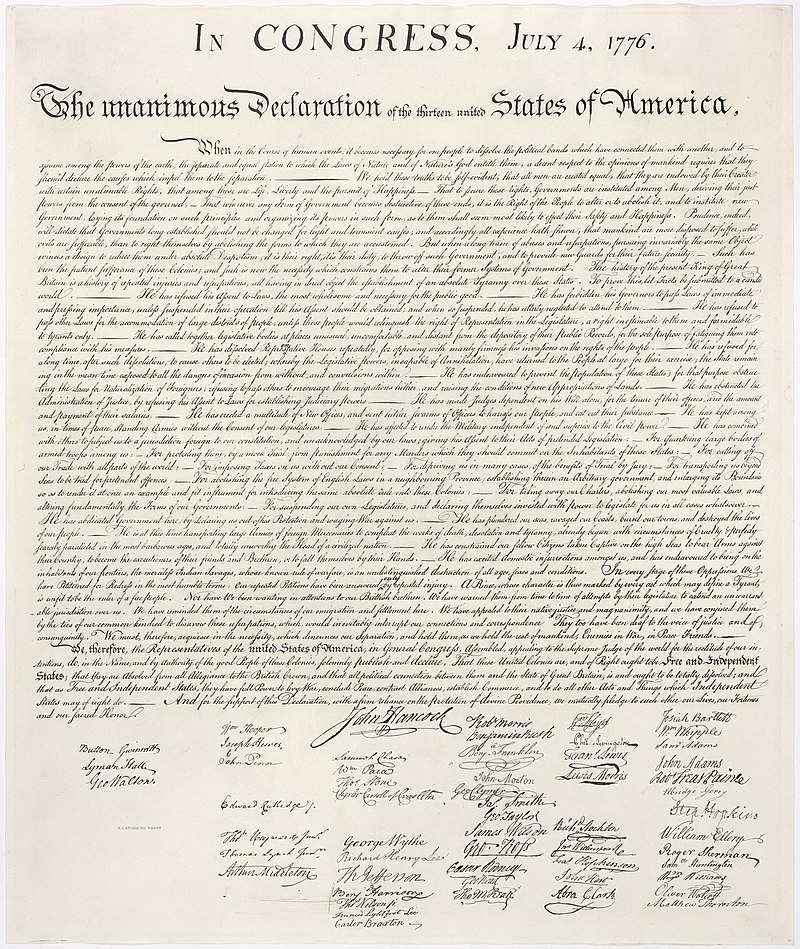 IN CONGRESS, JULY 4, 1776.
The unanimous Declaration of the thirteen united States of America,
When in the Course of human events, it becomes necessary for one people to dissolve the political bands which have connected them with another, and to
assume among the powers of the earth, the separate and equal station to which the Laws of Nature and of Nature's God entitle them, a decent respect to the opinions of mankind requires that they
should declare the causes which impel them to the separation. — We hold these truths to be self-evident, that all men are created equal, that they are endowed by their Creator
with certain unalienable Rights, that among these are Life, Liberty and the pursuit of Happiness.— That to secure these rights, Governments are instituted among Men, deriving their just
powers from the consent of the governed,— That whenever any Form of Government becomes destructive of these ends, it is the Right of the People to alter or to abolish it, and to institute new
Government, laying its foundation on such principles and organizing its powers in such form, as to them shall seem most likely to effect their Safety and Happiness. Prudence, indeed,
will dictate that Governments long established should not be changed for light and transient causes; and accordingly all experience hath shewn, that mankind are more disposed to suffer, while
evils are sufferable, than to right themselves by abolishing the forms to which they are accustomed. But when a long train of abuses and usurpations, pursuing invariably the same Object
evinces a design to reduce them under absolute Despotism, it is their right, it is their duty, to throw off such Government, and to provide new Guards for their future security.— Such has
been the patient sufferance of these Colonies; and such is now the necessity which constrains them to alter their former Systems of Government. The history of the present King of Great
Britain is a history of repeated injuries and usurpations, all having in direct object the establishment of an absolute Tyranny over these States. To prove this, let Facts be submitted to a candid
world. — He has refused his Assent to Laws, the most wholesome and necessary for the public good. — He has forbidden his Governors to pass Laws of immediate
and pressing importance, unless suspended in their operation till his Assent should be obtained; and when so suspended, he has utterly neglected to attend to them. — He has refused to
pass other Laws for the accommodation of large districts of people, unless those people would relinquish the right of Representation in the Legislature, a right inestimable to them and formidable
to tyrants only. — He has called together legislative bodies at places unusual, uncomfortable, and distant from the depository of their public Records, for the sole purpose of fatiguing them into
compliance with his measures. — He has dissolved Representative Houses repeatedly, for opposing with manly firmness his invasions on the rights of the people. — He has refused for
a long time, after such dissolutions, to cause others to be elected; whereby the Legislative powers, incapable of Annihilation, have returned to the People at large for their exercise; the State remain-
ing in the mean time exposed to all the dangers of invasion from without, and convulsions within. — He has endeavoured to prevent the population of these States; for that purpose obstruc-
ting the Laws for Naturalization of Foreigners; refusing to pass others to encourage their migrations hither, and raising the conditions of new Appropriations of Lands. — He has obstructed the
Administration of Justice, by refusing his Assent to Laws for establishing Judiciary powers. — He has made Judges dependent on his Will alone, for the tenure of their offices, and the amount
and payment of their salaries. — He has erected a multitude of New Offices, and sent hither swarms of Officers to harrass our people, and eat out their substance. — He has kept among
us, in times of peace, Standing Armies without the Consent of our legislatures. — He has affected to render the Military independent of and superior to the Civil power. — He has combined
with others to subject us to a jurisdiction foreign to our constitution, and unacknowledged by our laws; giving his Assent to their Acts of pretended Legislation:— For Quartering large bodies of
armed troops among us:— For protecting them, by a mock Trial, from punishment for any Murders which they should commit on the Inhabitants of these States:— For cutting off
our Trade with all parts of the world:— For imposing Taxes on us without our Consent:— For depriving us in many cases, of the benefits of Trial by Jury:— For transporting us beyond
Seas to be tried for pretended offences:— For abolishing the free System of English Laws in a neighbouring Province, establishing therein an Arbitrary government, and enlarging its Boundaries
so as to render it at once an example and fit instrument for introducing the same absolute rule into these Colonies:— For taking away our Charters, abolishing our most valuable Laws, and
altering fundamentally the Forms of our Governments:— For suspending our own Legislatures, and declaring themselves invested with power to legislate for us in all cases whatsoever.—
He has abdicated Government here, by declaring us out of his Protection and waging War against us.— He has plundered our seas, ravaged our Coasts, burnt our towns, and destroyed the lives
of our people.— He is at this time transporting large Armies of foreign Mercenaries to compleat the works of death, desolation and tyranny, already begun with circumstances of Cruelty & perfidy
scarcely paralleled in the most barbarous ages, and totally unworthy the Head of a civilized nation.— He has constrained our fellow Citizens taken Captive on the high Seas to bear Arms against
their Country, to become the executioners of their friends and Brethren, or to fall themselves by their Hands.— He has excited domestic insurrections amongst us, and has endeavoured to bring on the
inhabitants of our frontiers, the merciless Indian Savages, whose known rule of warfare, is an undistinguished destruction of all ages, sexes and conditions. In every stage of these Oppressions We
have Petitioned for Redress in the most humble terms: Our repeated Petitions have been answered only by repeated injury. A Prince, whose character is thus marked by every act which may define a Tyrant,
is unfit to be the ruler of a free people. Nor have We been wanting in attentions to our Brittish brethren. We have warned them from time to time of attempts by their legislature to extend an unwarrant-
able jurisdiction over us. We have reminded them of the circumstances of our emigration and settlement here. We have appealed to their native justice and magnanimity, and we have conjured them
by the ties of our common kindred to disavow these usurpations, which, would inevitably interrupt our connections and correspondence. They too have been deaf to the voice of justice and of
consanguinity. We must, therefore, acquiesce in the necessity, which denounces our Separation, and hold them, as we hold the rest of mankind, Enemies in War, in Peace Friends.—
We, therefore, the Representatives of the united States of America, in General Congress, Assembled, appealing to the Supreme Judge of the world for the rectitude of our in-
tentions, do, in the Name, and by Authority of the good People of these Colonies, solemnly publish and declare, That these United Colonies are, and of Right ought to be Free and Independent
States; that they are Absolved from all Allegiance to the British Crown, and that all political connection between them and the State of Great Britain, is and ought to be totally dissolved; and
that as Free and Independent States, they have full Power to levy War, conclude Peace, contract Alliances, establish Commerce, and to do all other Acts and Things which Independent
States may of right do.— And for the support of this Declaration, with a firm reliance on the protection of divine Providence, we mutually pledge to each other our Lives, our Fortunes
and our sacred Honor.
Button Gwinnett
Lyman Hall
Geo Walton.
W. J. STONE SC. WASHN.
Wm Hooper
Joseph Hewes,
John Penn
Edward Rutledge /.
Thos Heyward Junr.
Thomas Lynch Junr.
Arthur Middleton
John Hancock
Samuel Chase
Wm Paca
Thos Stone
Charles Carroll of Carrollton
George Wythe
Richard Henry Lee
Th Jefferson
Benj Harrison
Thos Nelson jr.
Francis Lightfoot Lee
Carter Braxton
Robt Morris
Benjamin Rush
Benj. Franklin
John Morton
Geo Clymer
Jas. Smith
Geo. Taylor
James Wilson
Geo. Ross
Caesar Rodney
Geo Read
Tho M:Kean
Wm Floyd
Phil. Livingston
Frans. Lewis
Lewis Morris
Richd. Stockton
Jno Witherspoon
Fras. Hopkinson
John Hart
Abra Clark
Josiah Bartlett
Wm Whipple
Saml Adams
John Adams
Robt Treat Paine
Elbridge Gerry
Step. Hopkins
William Ellery
Roger Sherman
Saml Huntington
Wm Williams
Oliver Wolcott
Matthew Thornton